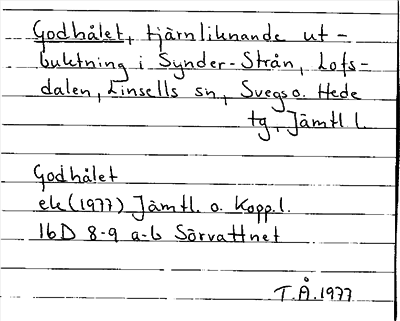 Godhålet, tjärnliknande ut-
buktning i Synder-Strån, Lofs-
dalen, Linsells sn, Svegs o. Hede
tg, Jämtl l.
Godhålet
ek (1977) Jämtl. o. Kopp.l.
16D 8-9 a-b Sörvattnet
T.Å. 1977